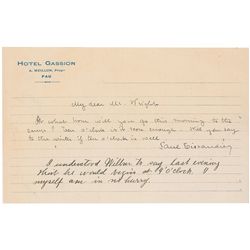 HOTEL GASSION
A. MEILLON, Propr
PAU
My dear Mr. Wright
At what hour will you go this morning to the
? Ten o'clock is soon enough. Will you say
to the writer if ten o'clock is well
Paul Tissandier
I understood Wilbur to say last evening
that he would begin at 9 o'clock. I
myself am in no hurry.